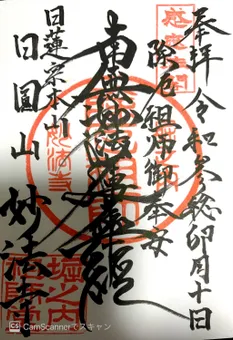 奉拝 令和参年卯月十日
除厄祖師御奉安
南無妙法蓮華経
日蓮宗本山
日圓山 妙法寺
妙法寺
堀之内
CS CamScannerでスキャン